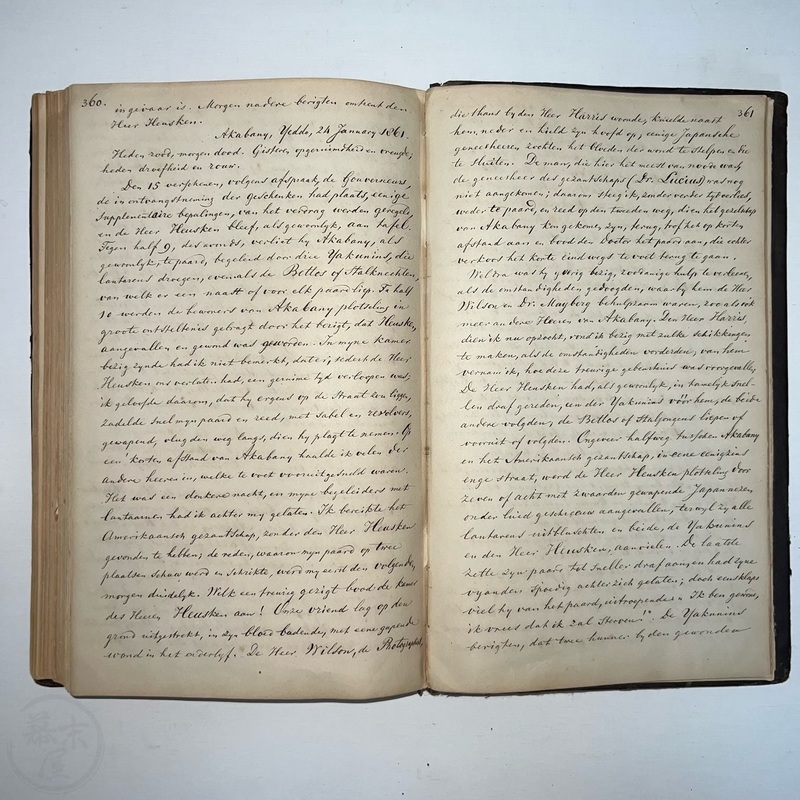 360.
in gevaar is. Morgen nadere berigten omtrent den
Heer Heusken.
Akabany, Yeddo, 24 January 1861.
Heden rood, morgen dood. Gisteren opgeruimdheid en vreugde,
heden droefheid en rouw.
Den 15 verschenen, volgens afspraak, de Gouverneurs,
de in ontvangstneming der Geschenken had plaats, eenige
Supplementaire bepalingen, van het verdrag werden geregeld,
en de Heer Heusken bleef, als gewoonlyk, aan tafel.
Tegen half 9, des avonds, verliet hy Akabany, als
gewoonlyk, te paard, begeleid door drie Yakunins, die
lantarens droegen, evenals de Bettos of Stalknechten,
van welk er een naast of voor elk paard liep. Te half
10 werden de bewoners van Akabany plotseling in
groote ontsteltenis gebragt door het berigt, dat Heusken,
aangevallen en gewond was geworden. In myne kamer
bezig zynde had ik niet bemerkt, dat er, sedert de Heer
Heusken ons verlaten had, een geruime tyd verloopen was;
ik geloofde daarom, dat hy ergens op de Straat zou liggen,
zadelde snel myn paard en reed, met sabel en revolvers,
gewapend, vlug den weg langs, dien hy plagt te nemen. Op
een korten afstand van Akabany haalde ik velen der
andere heeren in, welke te voet vooruitgesneld waren.
Het was een donkere nacht, en myne begeleiders met
lantaarnen had ik achter my gelaten. Ik bereikte het
Amerikaansch gezantschap, zonder den Heer Heusken
gevonden te hebben; de reden, waarom myn paard op twee
plaatsen schuw werd en schrikte, werd my eerst den volgenden
morgen duidelyk. Welk een treurig gezigt bood de kamer
des Heeren Heusken aan! Onze vriend lag op den
grond uitgestrekt, in zyn bloed badende, met eene gapende
wond in het onderlyf. De Heer Wilson, de Photographist,
361
die thans by den Heer Harris woonde, knielde naast
hem neder en hield zyn hoofd op; eenige Japansche
geneesheeren zochten het bloeden der wond te stelpen en die
te sluiten. De man, die hier het meest van noode was,
de geneesheer des gezantschaps (Dr. Lucius) was nog
niet aangekomen; daarom steeg ik, zonder verder tyd verlies,
weder te paard, en reed op den tweeden weg, dien het gezelschap
van Akabany kon gekomen zyn, terug, trof het op korten
afstand aan en bood den Doctor het paard aan, die echter
verkoos het korte eind wegs te voet terug te gaan.
Weldra was hy yverig bezig, zoodanige hulp te verleenen,
als de omstandigheden gedoogden, waarby hem de Heer
Wilson en Dr. Mayberg behulpzaam waren, zoo als ook
meer andere Heeren van Akabany. Den Heer Harris,
dien ik nu opzocht, vond ik bezig met zulke schikkingen
te maken, als de omstandigheden vorderden; van hem
vernam ik, hoe deze treurige gebeurtenis was voorgevallen.
De Heer Heusken had, als gewoonlyk, in tamelyk snel-
len draf gereden; een der Yakunins vóór hem; de beide
andere volgden; de Bettos of Staljongens liepen of
vooruit of volgden. Ongeveer halfweg tusschen Akabany
en het Amerikaansch gezantschap, in eene eenigzins
enge straat, werd de Heer Heusken plotseling door
zeven of acht met zwaarden gewapende Japannezen
onder luid geschreeuw aangevallen, terwyl zy alle
lantarens uitbluschten en beide, de Yakunins
en den Heer Heusken, aanvielen. De laatste
zette zyn paard tot sneller draf aan, en had zyne
vyanden spoedig achter zich gelaten; doch eensklaps
viel hy van het paard, uitroepende: "Ik ben gewond,
ik vrees dat ik zal sterven!" De Yakunins
berigten, dat twee hunner by den gewonden